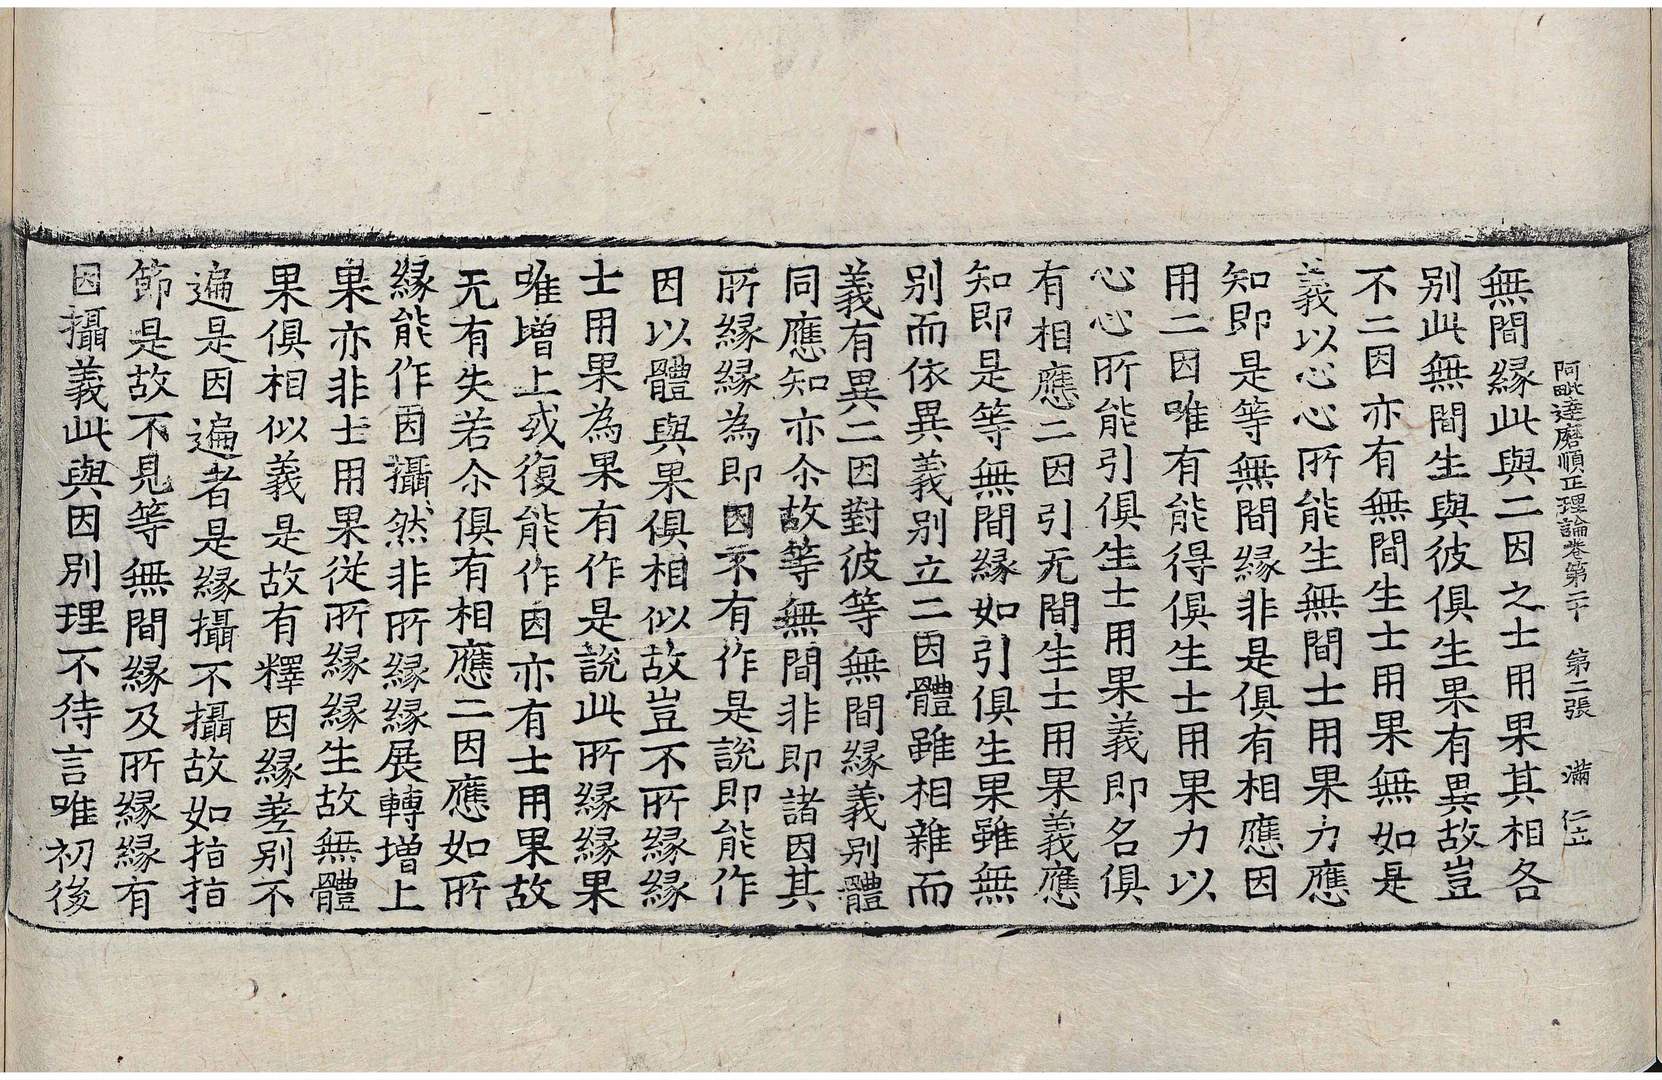 阿毗達磨順正理論卷第二十 第二張 滿 仁立
無間縁此與二因之士用果其相各
别此無間生與彼俱生果有異故豈
不二因亦有無間生士用果無如是
義以心心所能生無間士用果力應
知即是等無間縁非是俱有相應因
用二因唯有能得俱生士用果力以
心心所能引俱生士用果義即名俱
有相應二因引无間生士用果義應
知即是等無間縁如引俱生果雖無
别而依異義别立二因體雖相雜而
義有異二因對彼等無間縁義别體
同應知亦尒故等無間非即諸因其
所縁縁為即因不有作是說即能作
因以體與果俱相似故豈不所縁縁
士用果為果有作是說此所縁縁果
唯增上或復能作因亦有士用果故
无有失若尒俱有相應二因應如所
縁能作因攝然非所縁縁展轉增上
果亦非士用果從所縁縁生故無體
果俱相似義是故有釋因縁差别不
遍是因遍者是縁攝不攝故如指指
節是故不見等無間縁及所縁縁有
因攝義此與因别理不待言唯初後